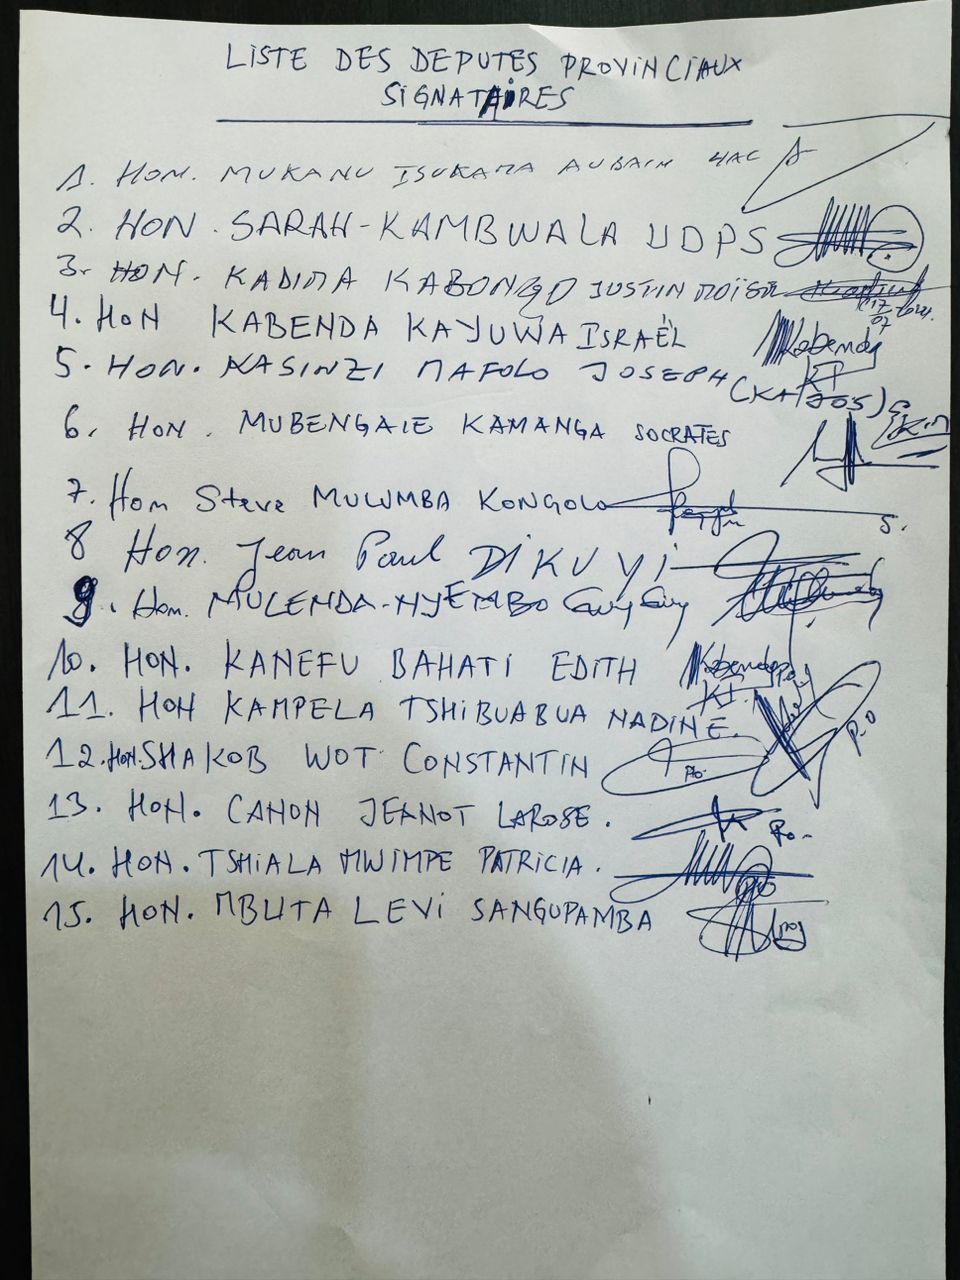 LISTE DES DEPUTES PROVINCIAUX
SIGNATAIRES
1. HON. MUKANU ISUKAMA AUBAIN 4AC
2. HON. SARAH-KAMBWALA UDPS
3. HON. KADIMA KABONGO JUSTIN MOÏSE
17/07
4. HON KABENDA KAYUWA ISRAËL Kabenda
KI
5. HON. KASINZI MAFOLO JOSEPH (KAJOS)
6. HON. MUBENGAIE KAMANGA SOCRATES
7. Hon Steve MULUMBA KONGOLO
8 Hon. Jean Paul DIKUYI
9. Hon. MULENDA-NYEMBO Guy Guy
10. HON. KANEFU BAHATI EDITH Kabenda
KI
11. HON KAMPELA TSHIBUABUA NADINE. P.O
12. HON. SHAKOB WOT CONSTANTIN Po.
13. HON. CANON JEANOT LAROSE. Po-
14. HON. TSHIALA MWIMPE PATRICIA. po
15. HON. MBUTA LEVI SANGUPAMBA po